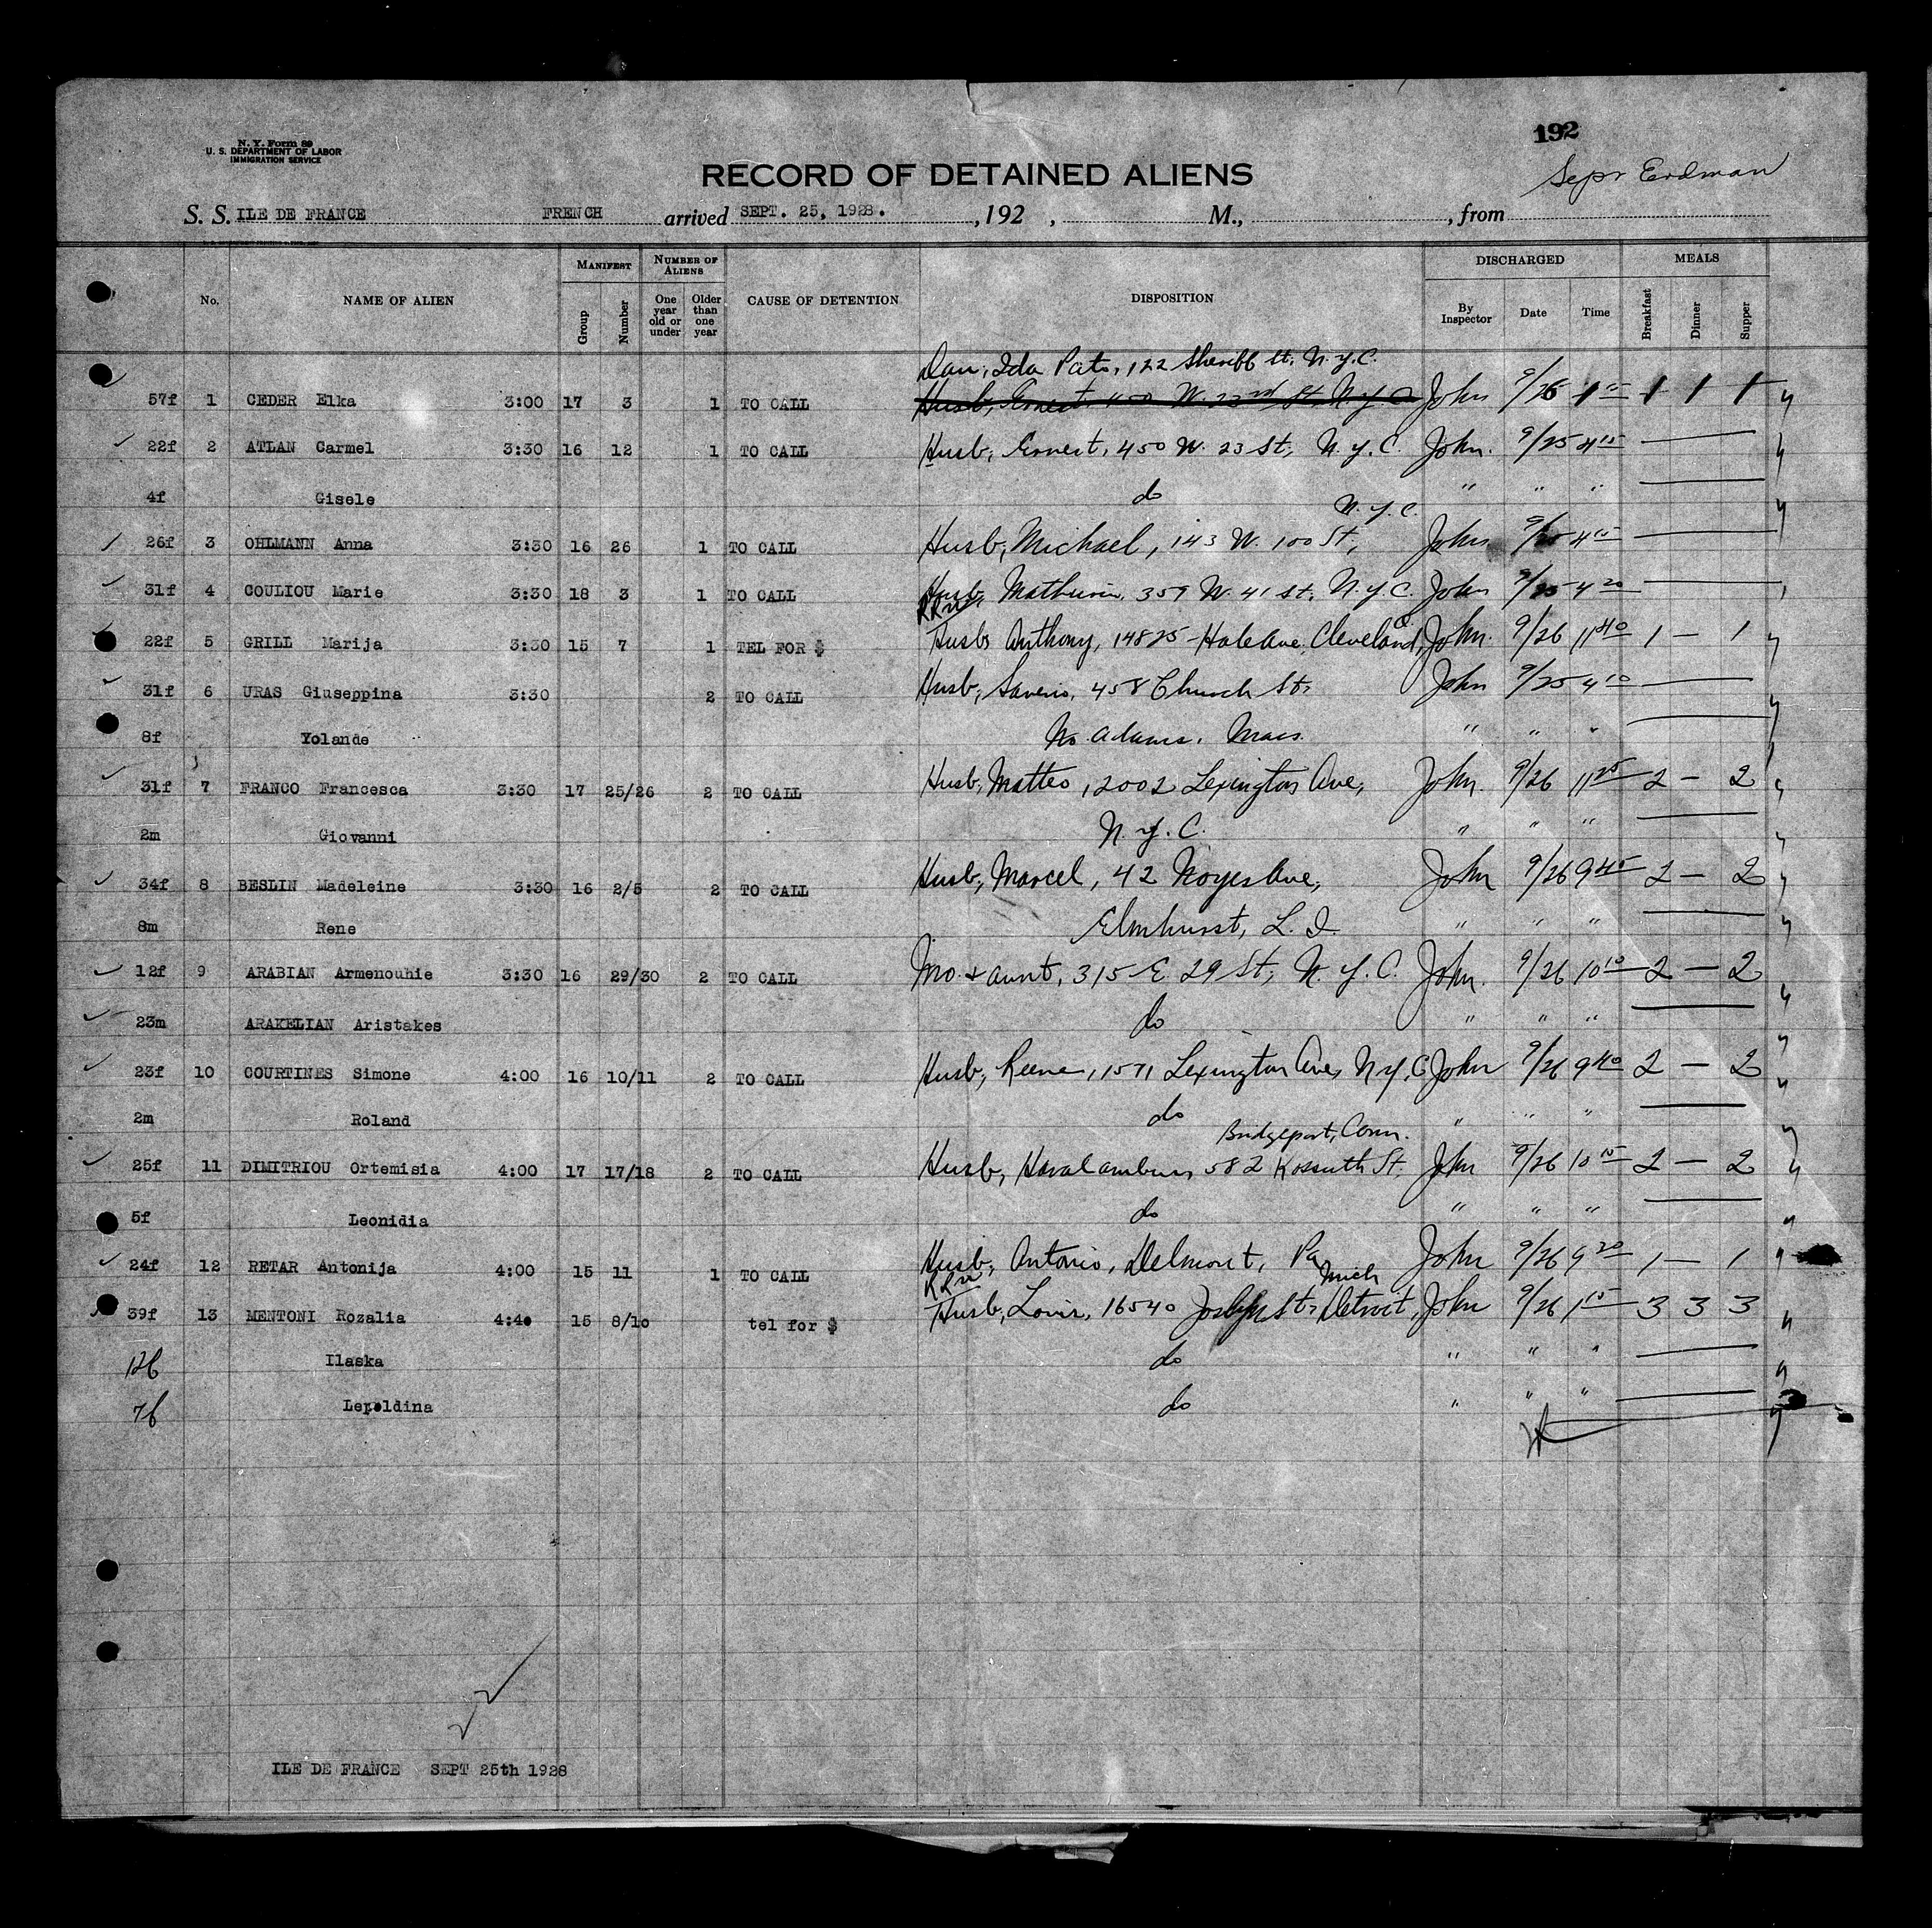 192
N. Y. Form 89
U. S. DEPARTMENT OF LABOR
IMMIGRATION SERVICE
RECORD OF DETAINED ALIENS
Erdman
S. S. ILE DE FRANCE FRENCH arrived SEPT. 25, 1928. , 192 , M., , from
No. NAME OF ALIEN MANIFEST Group Number NUMBER OF ALIENS One year old or under Older than one year CAUSE OF DETENTION DISPOSITION DISCHARGED By Inspector Date Time MEALS Breakfast Dinner Supper
Dau, Ida Pats, 122 Sheriff St. N.Y.C.
57f 1 CEDER Elka 3:00 17 3 1 TO CALL Husb, Ernest 450 W. 23rd St, N.Y.C. John 9/26 1 1 1
22f 2 ATLAN Carmel 3:30 16 12 1 TO CALL Husb, Ernest, 450 W. 23 St, N.Y.C. John. 9/25 4 15
4f Gisele do " " "
N.Y.C.
26f 3 OHLMANN Anna 3:30 16 26 1 TO CALL Husb, Michael, 143 W. 100 St, John 9/25 4
31f 4 COULIOU Marie 3:30 18 3 1 TO CALL Husb, Mathurin, 359 W. 41 St. N.Y.C. John 9/25 4 20
22f 5 GRILL Marija 3:30 15 7 1 TEL FOR $ Husb Anthony, 14825 - Hale Ave, Cleveland, O. John. 9/26 11 40 1 — 1
31f 6 URAS Giuseppina 3:30 2 TO CALL Husb, Saverio, 458 Church St, John 9/25 4 10
8f Yolande No. Adams, Mass. " " "
31f 7 FRANCO Francesca 3:30 17 25/26 2 TO CALL Husb, Matteo, 2002 Lexington Ave, John. 9/26 11 25 2 — 2
2m Giovanni N.Y.C. " " "
34f 8 BESLIN Madeleine 3:30 16 2/5 2 TO CALL Husb, Marcel, 42 Noyes Ave, John 9/26 9 45 2 — 2
8m Rene Elmhurst, L. I. " " "
12f 9 ARABIAN Armenouhie 3:30 16 29/30 2 TO CALL Mo. & aunt, 315 E. 29 St, N.Y.C. John. 9/26 10 10 2 — 2
23m ARAKELIAN Aristakes do " " "
23f 10 COURTINES Simone 4:00 16 10/11 2 TO CALL Husb, Reene, 1571 Lexington Ave, N.Y.C John 9/26 9 40 2 — 2
2m Roland do " " "
Bridgeport, Conn.
25f 11 DIMITRIOU Ortemisia 4:00 17 17/18 2 TO CALL Husb, 582 Kossuth St. John 9/26 10 15 2 — 2
5f Leonidia do " " "
24f 12 RETAR Antonija 4:00 15 11 1 TO CALL Husb, Antonio, Delmont, Pa John 9/26 9 20 1 — 1
Mich
39f 13 MENTONI Rozalia 4:40 15 8/10 tel for $ Husb, Louis, 16540 St, Detroit, John 9/26 1 15 3 3 3
12f Ilaska do " " "
7f Lepoldina do " " "
ILE DE FRANCE SEPT 25th 1928